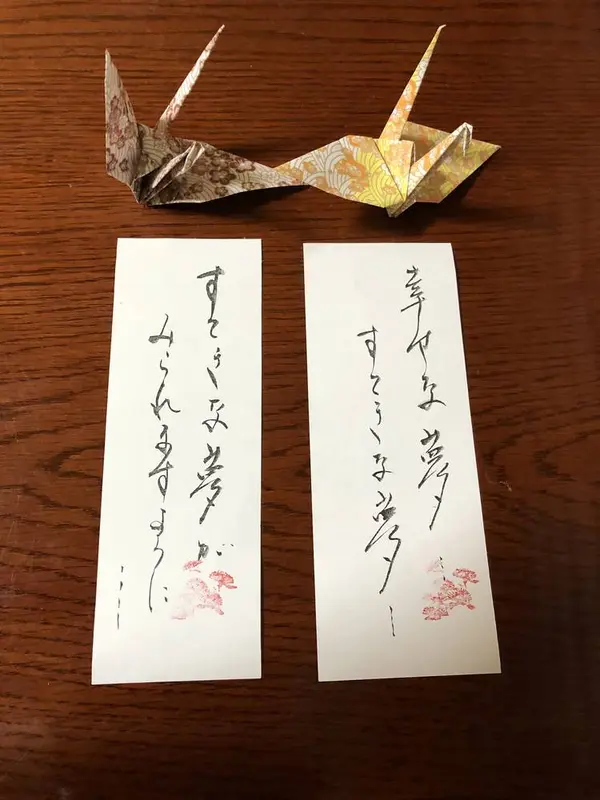 幸せな夢…
すてきな夢…
すてきな夢が
みられますように
……